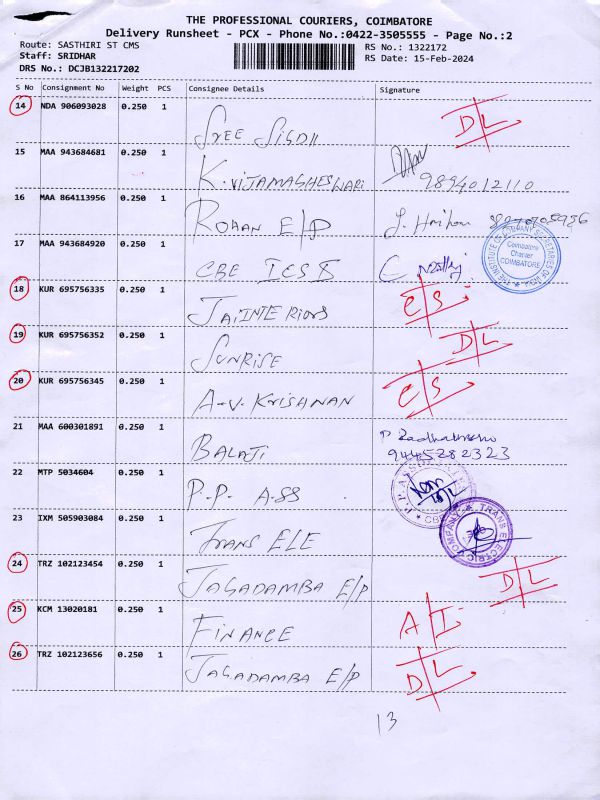 THE PROFESSIONAL COURIERS, COIMBATORE
Delivery Runsheet - PCX - Phone No.:0422-3505555 - Page No.:2
Route: SASTHIRI ST CMS RS No.: 1322172
Staff: SRIDHAR RS Date: 15-Feb-2024
DRS No.: DCJB132217202
S No Consignment No Weight PCS Consignee Details Signature
14 NDA 906093028 0.250 1 D/L
SREE
15 MAA 943684681 0.250 1
K. 9894012110
16 MAA 864113956 0.250 1
ROHAN E/P
17 MAA 943684920 0.250 1
CBE
THE INSTITUTE OF COMPANY SECRETARIES OF INDIA
Coimbatore
Chapter
COIMBATORE
18 KUR 695756335 0.250 1 C/S
JAINTERIORS
19 KUR 695756352 0.250 1 D/L
SUNRISE
20 KUR 695756345 0.250 1 C/S
A-V. KRISHNAN
21 MAA 600301891 0.250 1
BALAJI 9445282323
22 MTP 5034604 0.250 1
P.P. ASS
23 IXM 505903084 0.250 1
TRANS ELE
TRANS ELECTRIC COMPANY
24 TRZ 102123454 0.250 1 D/L
JAGADAMBA E/P
25 KCM 13020181 0.250 1 A/I
FINANCE
26 TRZ 102123656 0.250 1 D/L
JAGADAMBA E/P
13